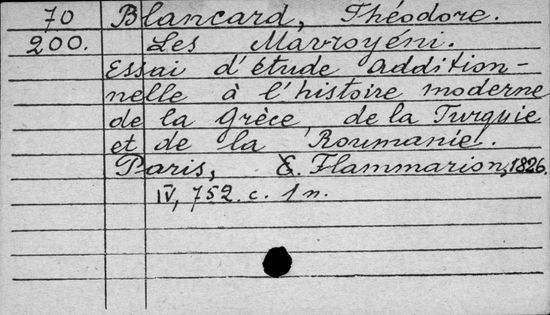 70 Blancard, Théodore.
200. Les Mavroyéni.
Essai d'étude addition-
nelle à l'histoire moderne
de la Grèce, de la Turquie
et de la Roumanie.
Paris, E. Flammarion, 1826.
IV, 752. c. 1 n.